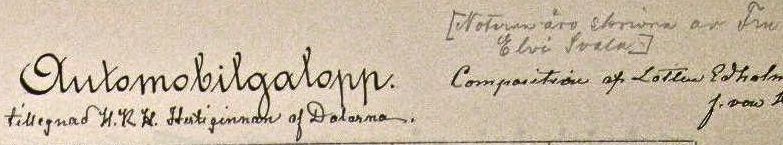 [Noterna äro skrivna av Fru
Elvi Svala]
Automobilgalopp.
Composition af Lotten Edholm
tillegnad H.K.H. Hertiginnan af Dalarna.
f. von